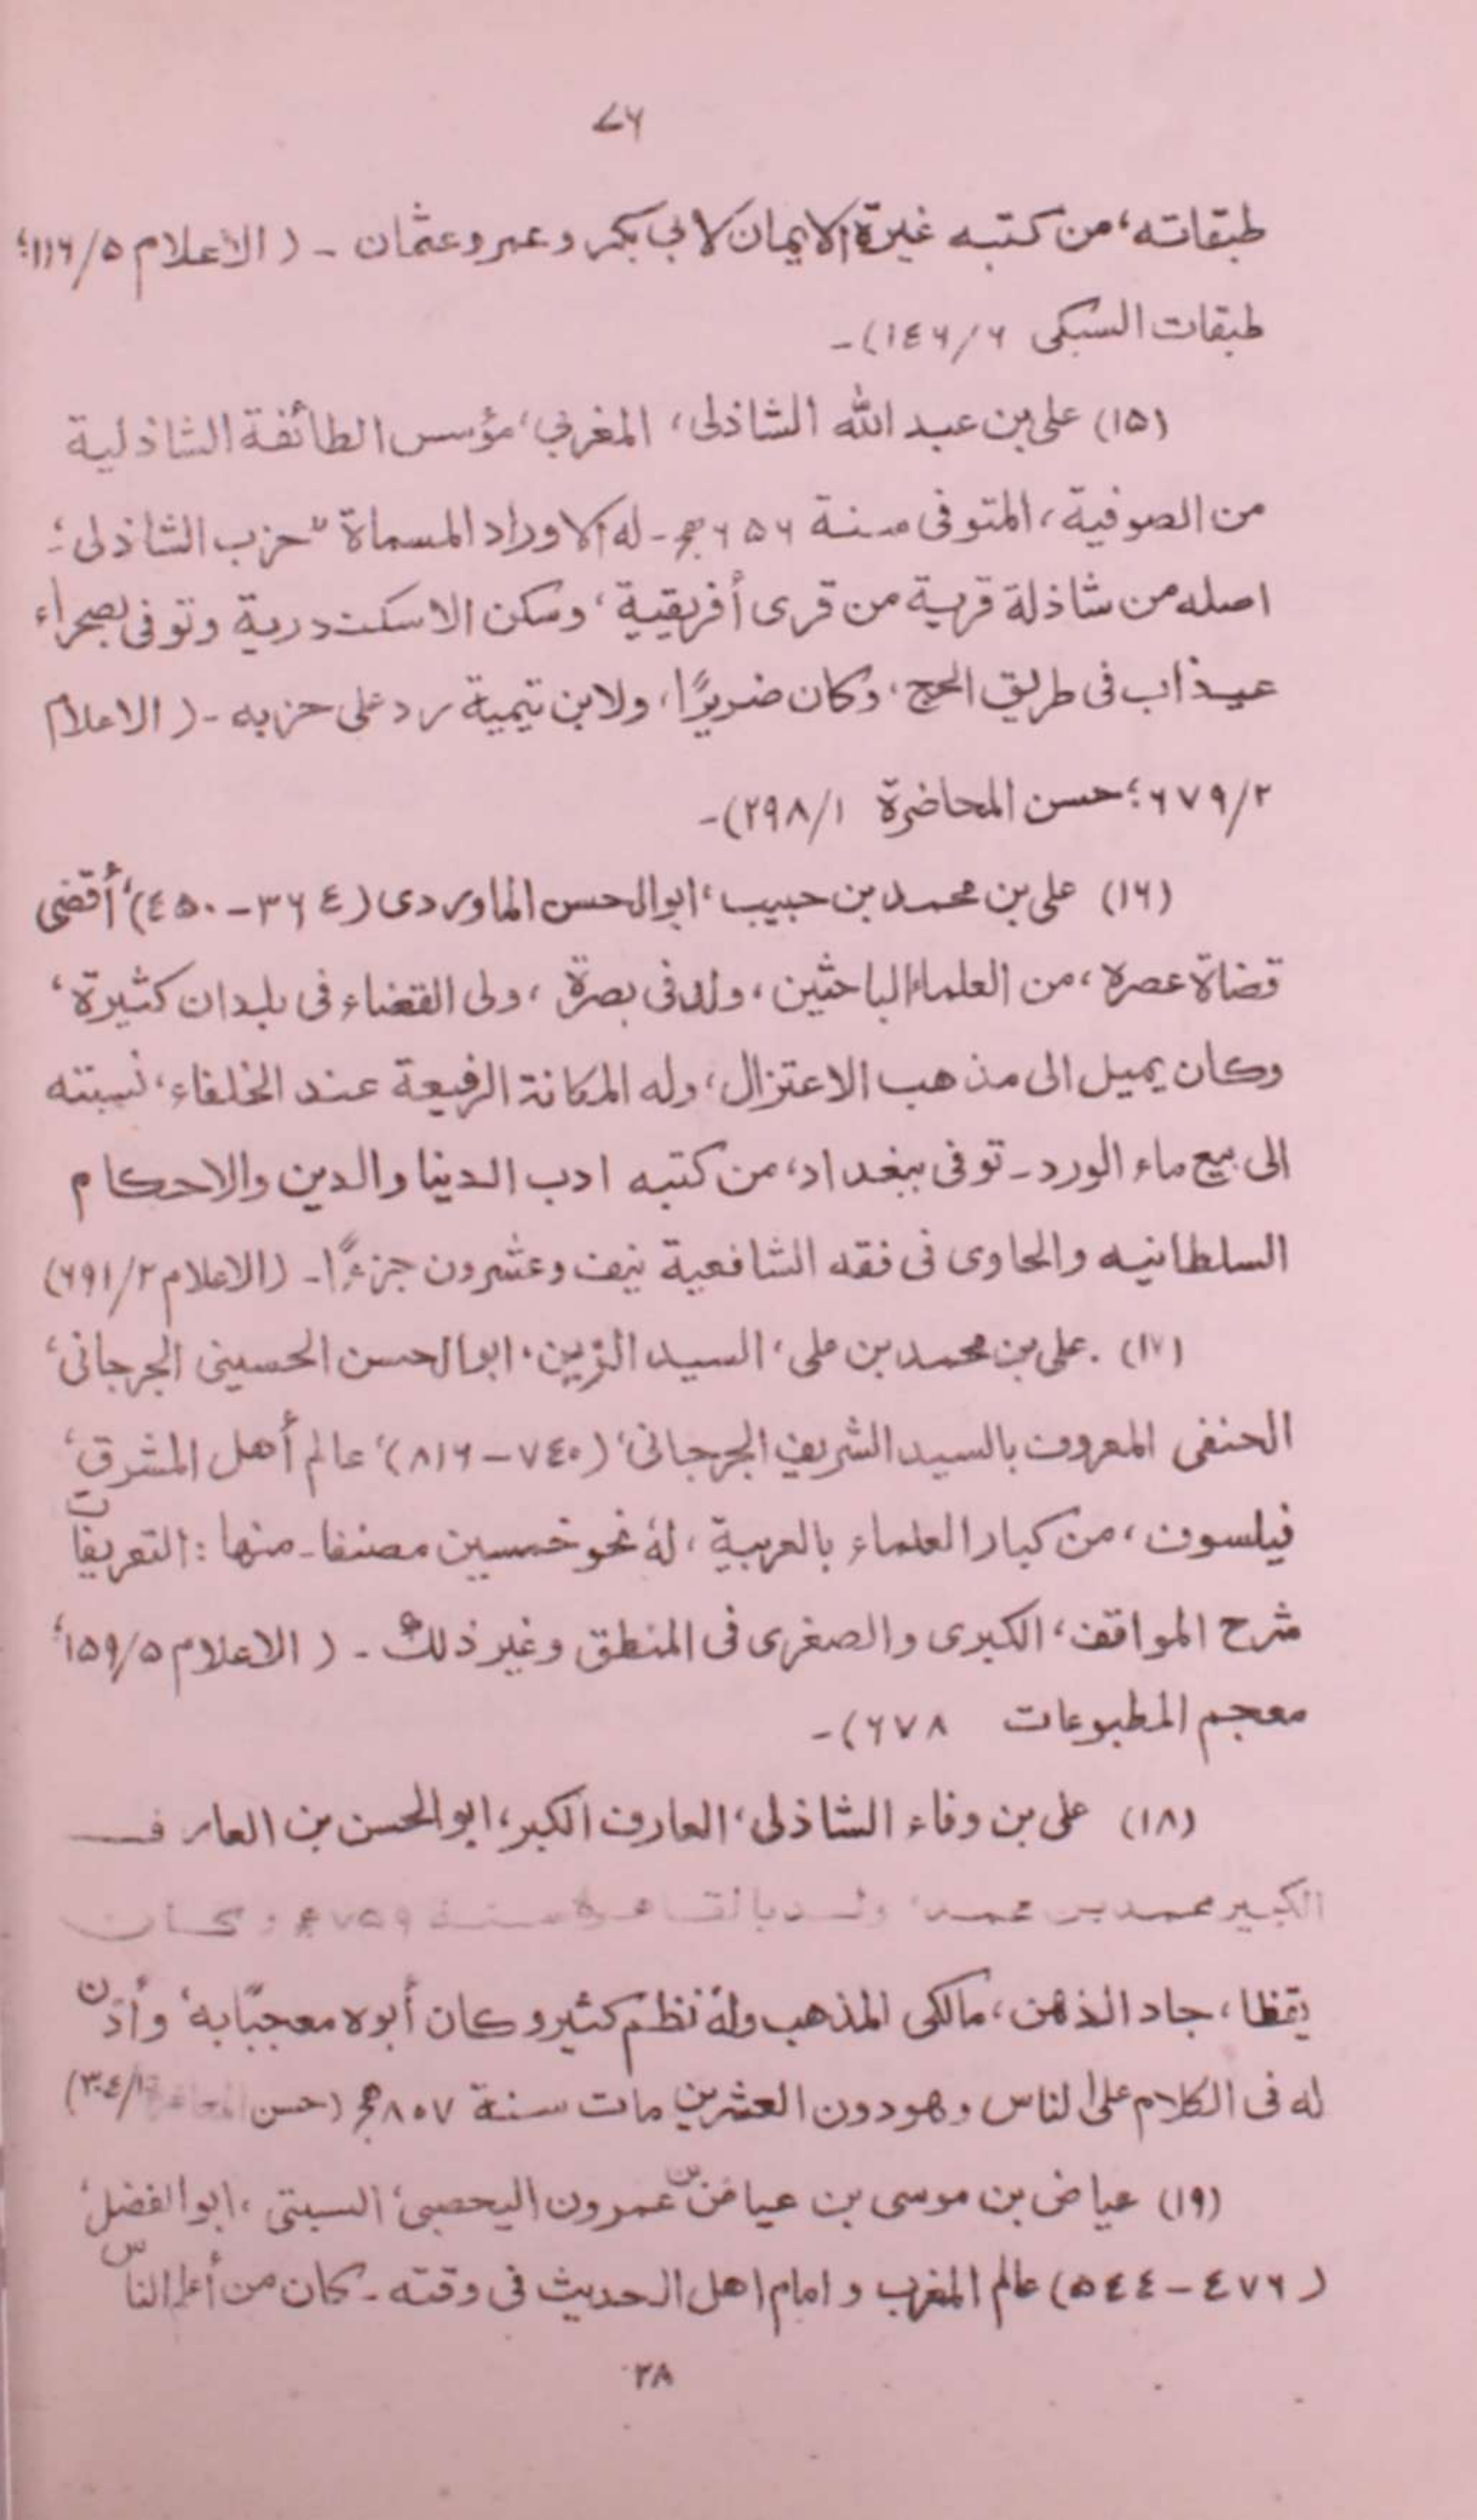 ۷۶
طبقاته، من كتبه غيرة الايمان لابي بكر وعمر وعثمان ـ (الاعلام ۵/۱۱۶؛
طبقات السبكى ۶/۱٤۶)ـ
(۱۵) على بن عبد الله الشاذلى، المغربي، مؤسس الطائفة الشاذلية
من الصوفية، المتوفى سنة ۶۵۶ھ ـ له الاوراد المسماة "حزب الشاذلى"؛
اصله من شاذلة قرية من قرى أفريقية، وسكن الاسكندرية وتوفى بصحراء
عيذاب فى طريق الحج، وكان ضريرًا، ولابن تيمية رد على حزبه ـ (الاعلام
۲/۶۷۹؛ حسن المحاضرة ۱/۲۹۸)ـ
(۱۶) على بن محمد بن حبيب، ابوالحسن الماوردى (۳۶٤ ـ ٤۵۰)، أقضى
قضاة عصره، من العلماء الباحثين، ولد فى بصرة، ولى القضاء فى بلدان كثيرة،
وكان يميل الى مذهب الاعتزال، وله المكانة الرفيعة عند الخلفاء، نسبته
الى بيع ماء الورد ـ توفى ببغداد، من كتبه ادب الدنيا والدين والاحكام
السلطانيه والحاوى فى فقه الشافعية نيف وعشرون جزءًا ـ (الاعلام ۲/۶۹۱)
(۱۷) على بن محمد بن على، السيد الزين، ابوالحسن الحسينى الجرجانى،
الحنفى المعروف بالسيد الشريف الجرجانى، (۷٤۰ ـ ۸۱۶)، عالم أهل المشرق،
فيلسوف، من كبار العلماء بالعربية، لهٗ نحو خمسين مصنفا ـ منها: التعريفات
شرح المواقف، الكبرى والصغرى فى المنطق وغير ذلك ـ (الاعلام ۵/۱۵۹؛
معجم المطبوعات ۶۷۸)ـ
(۱۸) على بن وفاء الشاذلى، العارف الكبر، ابوالحسن بن العارف
الكبير محمد بن محمد، ولد بالقاهرة سنة ۷۵۹ھ، وكان
يقظا، جاد الذهن، مالكى المذهب ولهٗ نظم كثير وكان أبوه معجبًا به، وأذن
له فى الكلام على الناس وهو دون العشرين مات سنة ۸۰۷ھ (حسن المحاضرة ۱/۳۰٤)
(۱۹) عياض بن موسى بن عياض بن عمرون اليحصبى، السبتى، ابوالفضل،
(٤۷۶ ـ ۵٤٤) عالم المغرب و امام اهل الحديث فى وقته ـ كان من أعلم الناس
۲۸